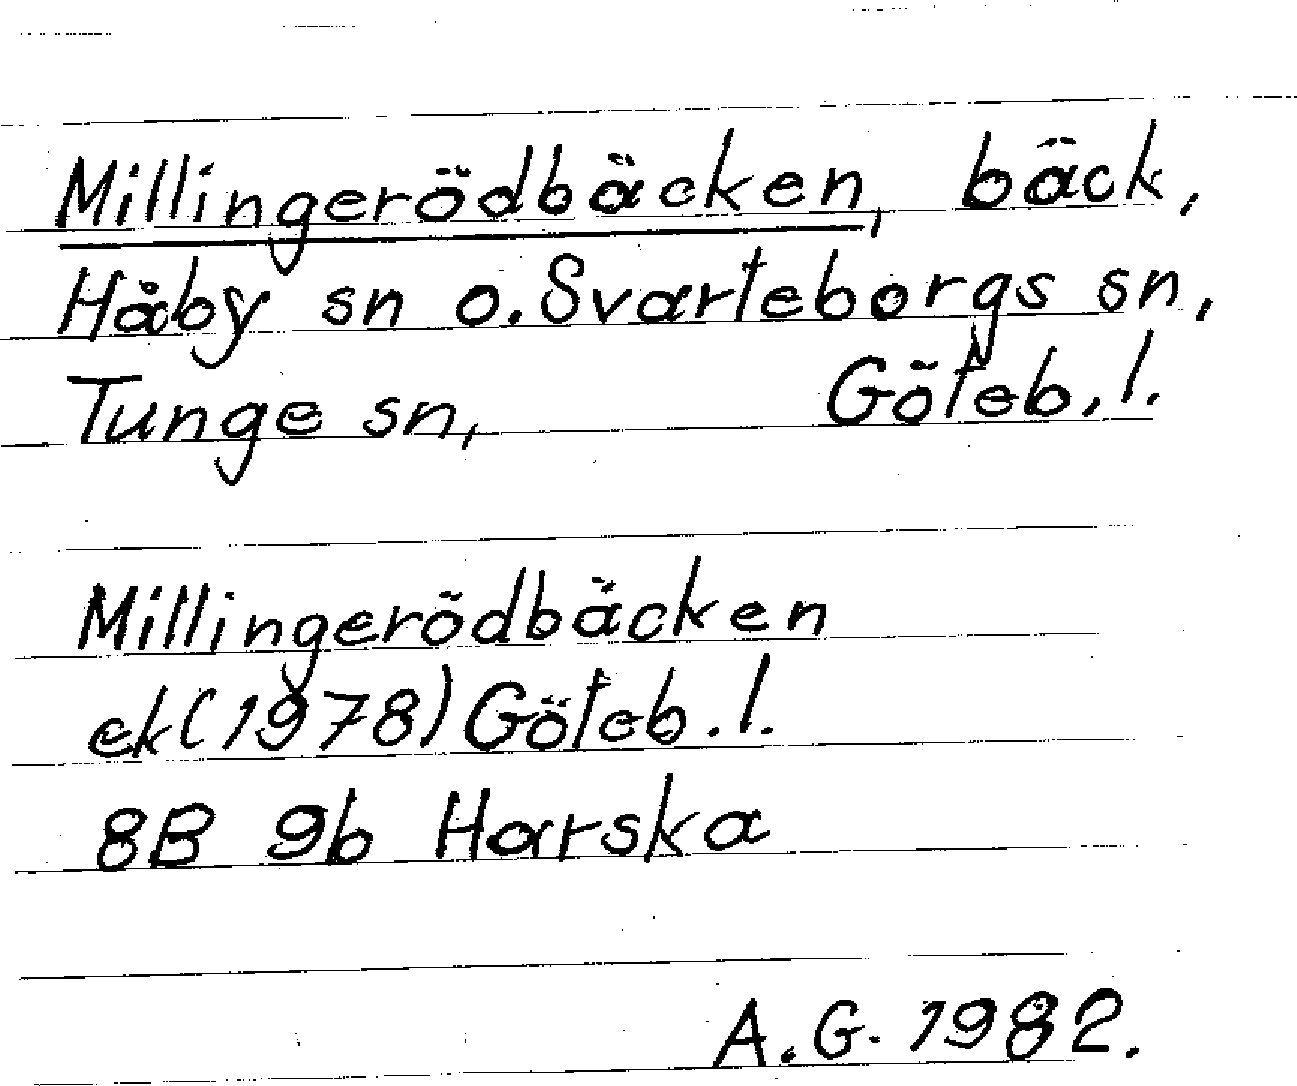 Millingerödbäcken, bäck,
Håby sn o. Svarteborgs sn,
Tunge sn, Göteb. l.
Millingerödbäcken
ek (1978) Göteb. l.
8B 9b Harska
A.G. 1982.